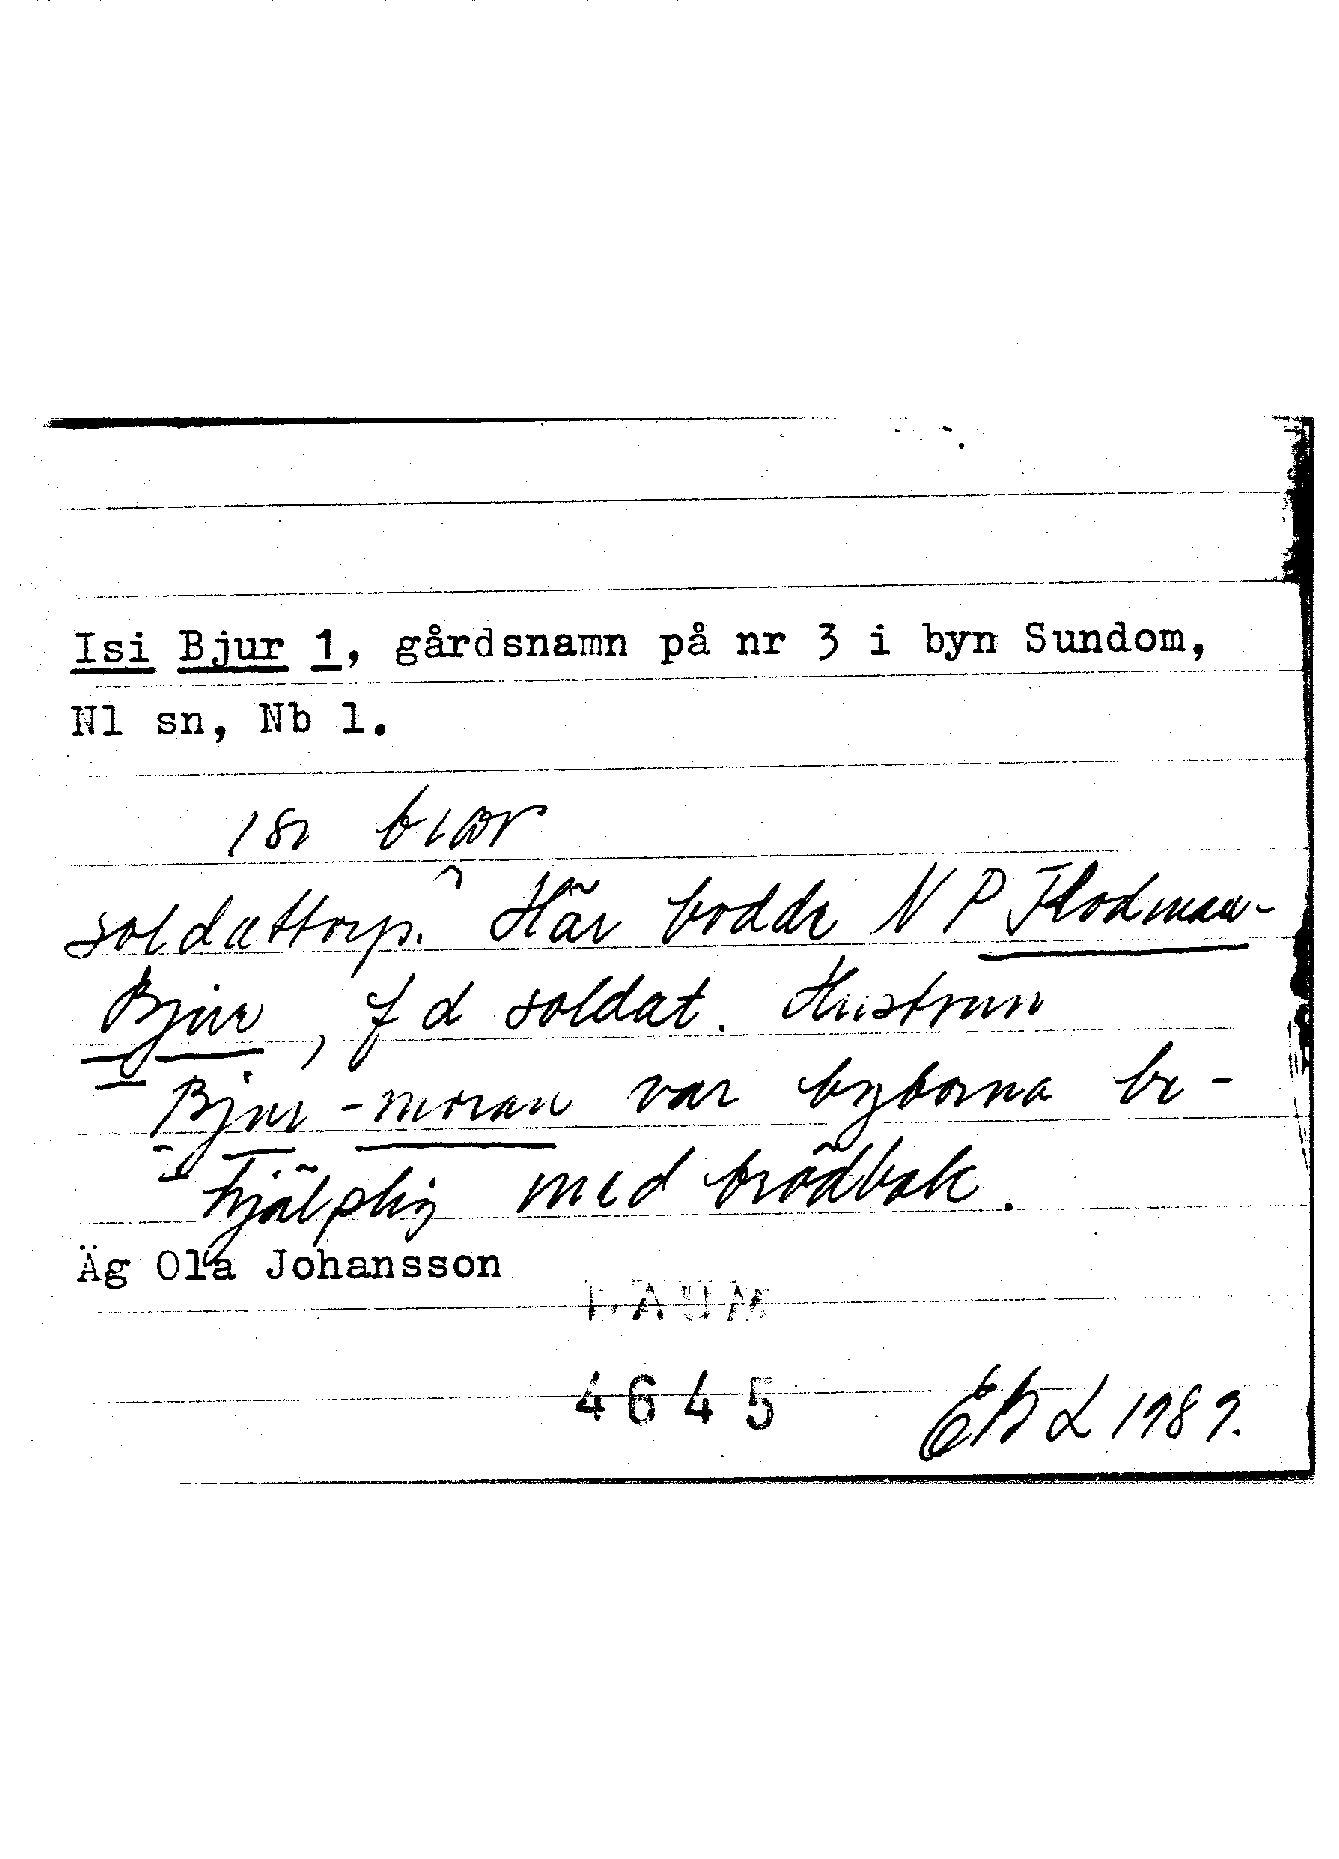 Isi Bjur 1, gårdsnamn på nr 3 i byn Sundom,
Nl sn, Nb l.
soldattorp. Här bodde N P Flodman-
Bjur, f d soldat. Hustrun
Bjur-moran var byborna be-
hjälplig med brödbak.
Äg Ola Johansson
DAUM
4645
EBL 1989.